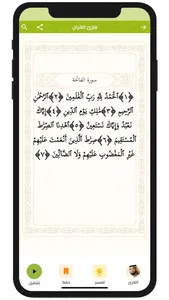 قارئ القرآن
سورة الفاتحة
﴿١﴾ ٱلْحَمْدُ لِلَّهِ رَبِّ ٱلْعَٰلَمِينَ ﴿٢﴾ ٱلرَّحْمَٰنِ
ٱلرَّحِيمِ ﴿٣﴾ مَٰلِكِ يَوْمِ ٱلدِّينِ ﴿٤﴾ إِيَّاكَ
نَعْبُدُ وَإِيَّاكَ نَسْتَعِينُ ﴿٥﴾ ٱهْدِنَا ٱلصِّرَٰطَ
ٱلْمُسْتَقِيمَ ﴿٦﴾ صِرَٰطَ ٱلَّذِينَ أَنْعَمْتَ عَلَيْهِمْ
غَيْرِ ٱلْمَغْضُوبِ عَلَيْهِمْ وَلَا ٱلضَّآلِّينَ ﴿٧﴾
القارئ تفسير حفظ تشغيل